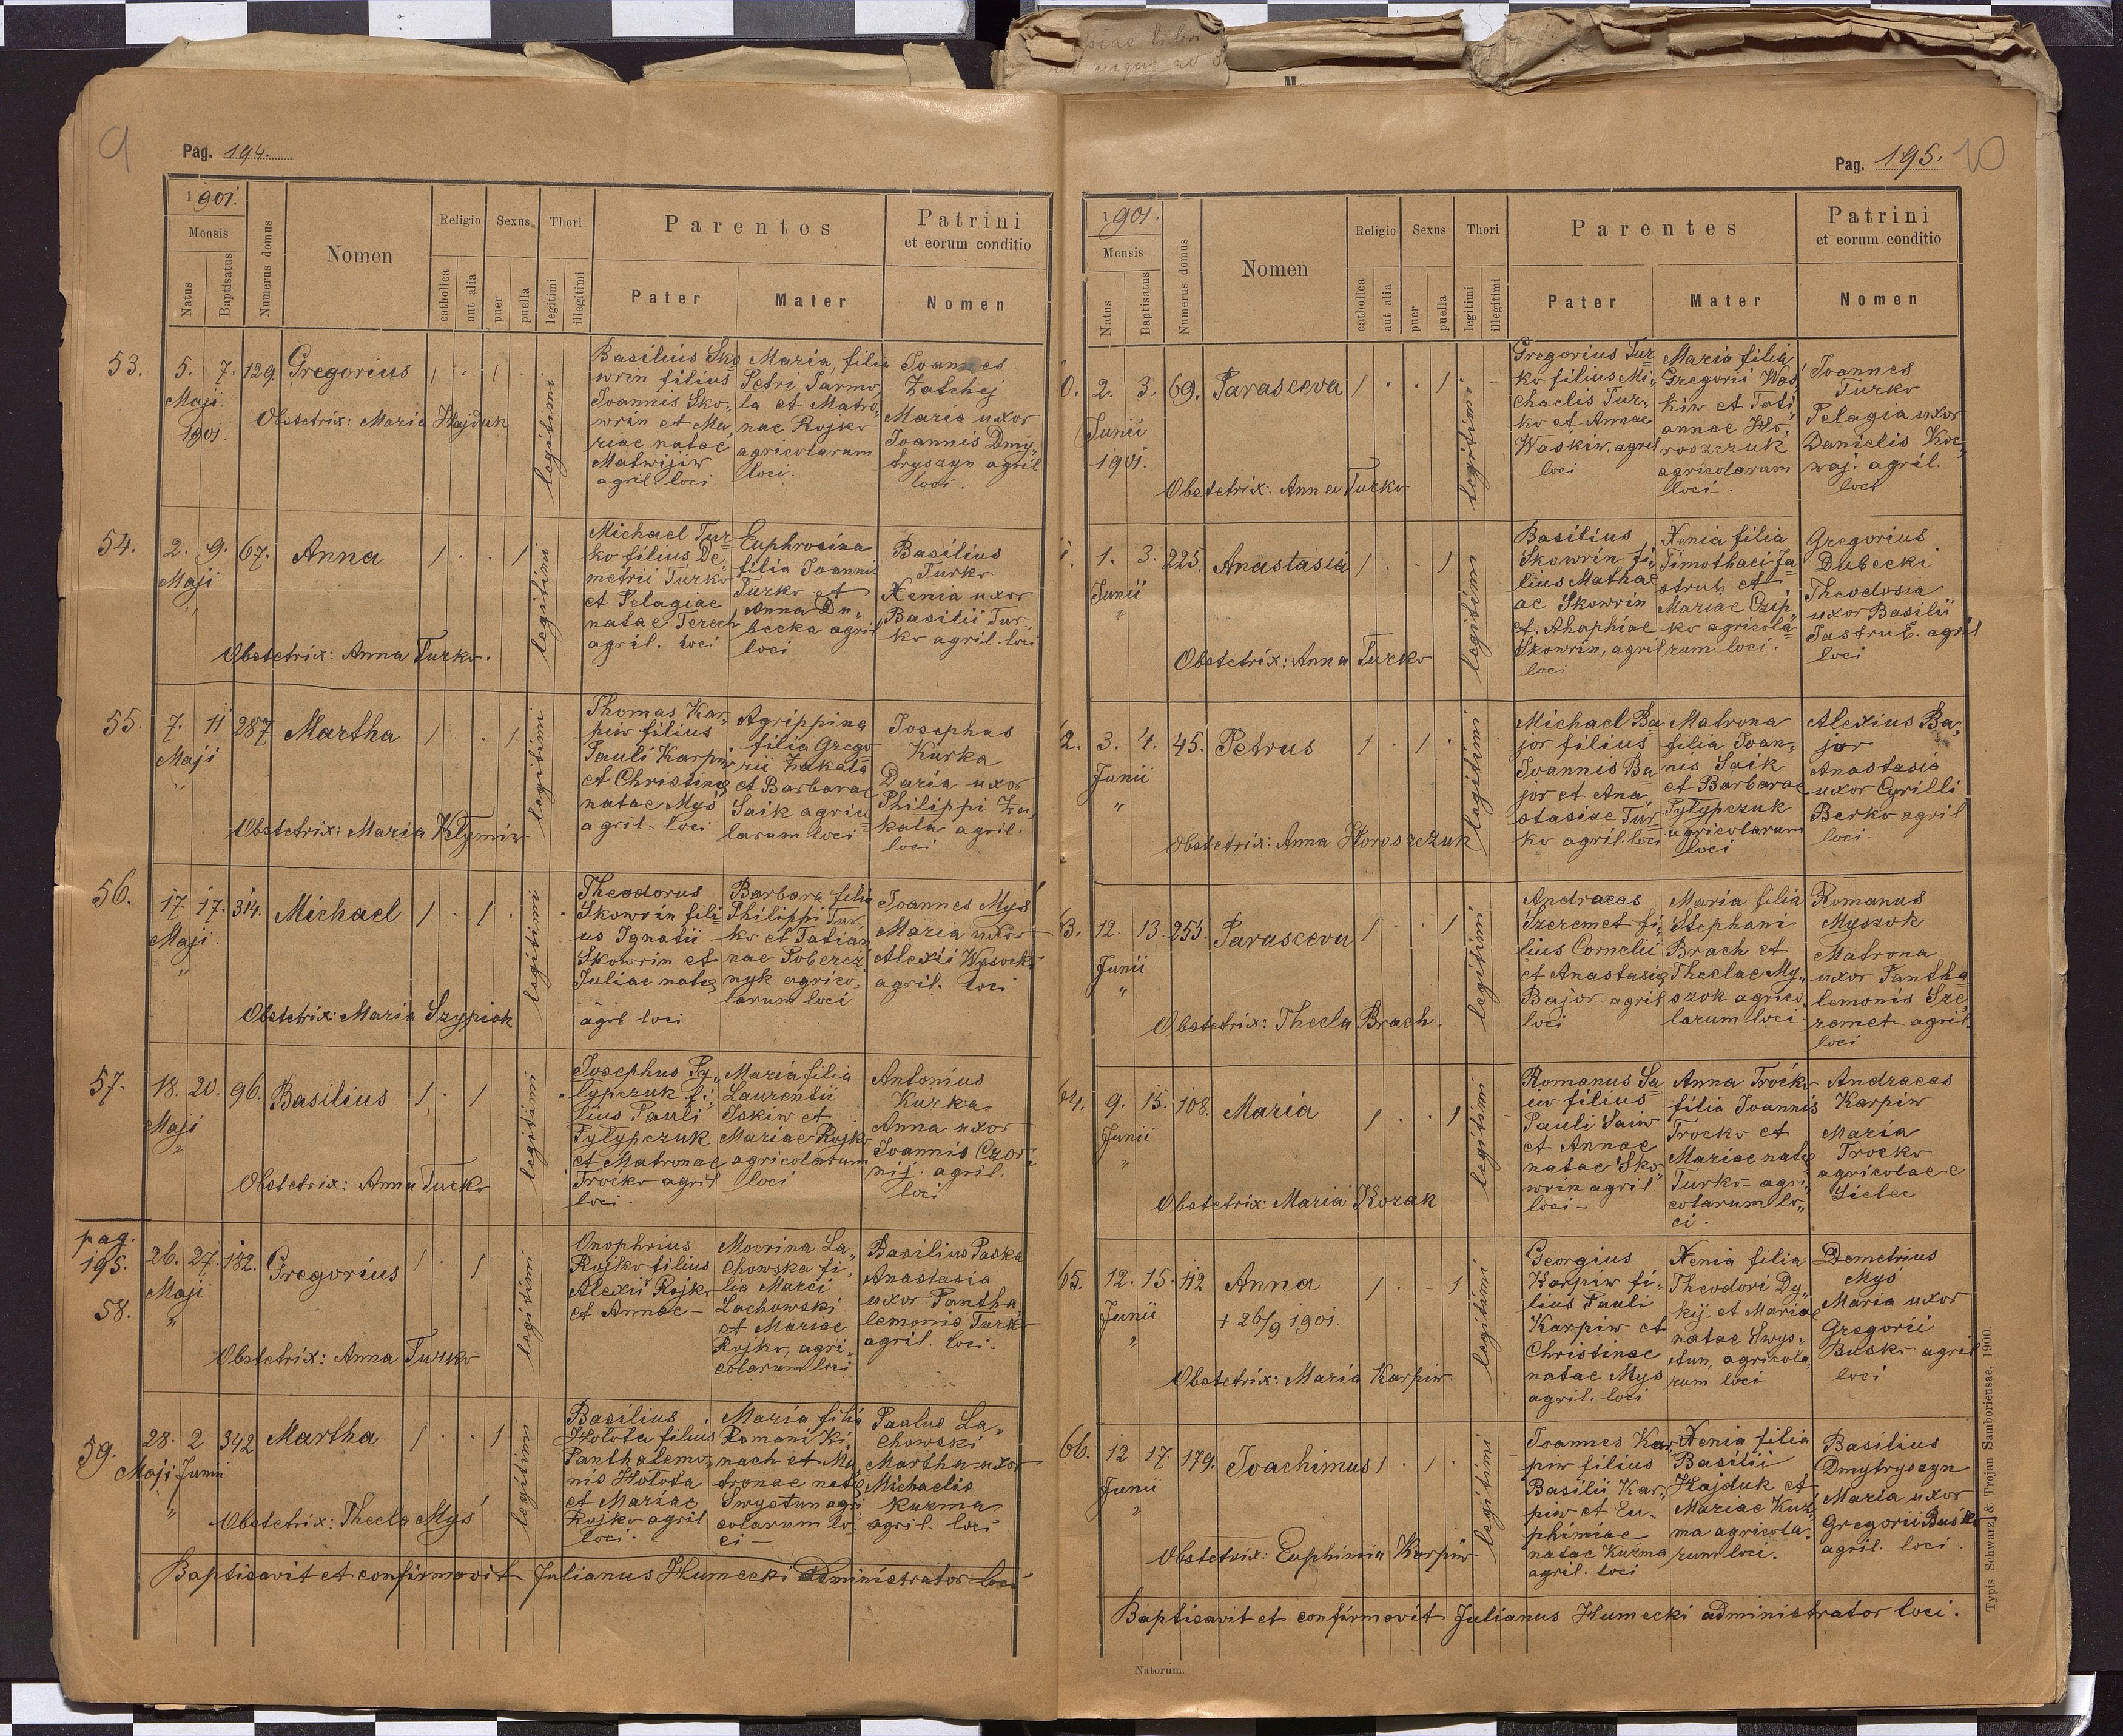 9
Pag. 194.
1901.
Mensis
Natus
Baptisatus
Numerus domus
Nomen
Religio
catholica
aut alia
Sexus
puer
puella
Thori
legitimi
illegitimi
Parentes
Pater
Mater
Patrini
et eorum conditio
Nomen
53.
5. 7. 129. Gregorius 1 . 1 .
Maji
1901.
Obstetrix: Maria Hajduk
legitimi
Basilius Sko
wrin filius
Joannis Sko-
wrin et Ma
riae natae
Matwijiw
agril loci
Maria, filia
Petri Jarmo
la et Matro-
nae Rojko
agricolarum
loci.
Joannes
Zatchej
Maria uxor
Joannis Dmy
tryszyn agril
loci.
54.
2. 9. 67. Anna 1 . . 1
Maji
"
Obstetrix: Anna Turko.
legitimi
Michael Tur=
ko filius De,
metrii Turko
et Pelagiae
natae Terech
agril. loci
Euphrosina
filia Joannis
Turko et
Anna Du„
becka agril
loci
Basilius
Turko
Xenia uxor
Basilii Tur.
ko agril. loci
55.
7. 11 287 Martha 1 . . 1
Maji
"
Obstetrix: Maria Klymiw
legitimi
Thomas Kar,
piw filius
Pauli Karpiw
et Christinae
natae Myś
agril. loci
Agrippina
filia Grego
rii Zakala
et Barbarae
Saik agrico
larum loci
Josephus
Kurka
Daria uxor
Philippi Zu,
kala agril.
loci
56.
17. 17. 314. Michael 1 . 1 .
Maji.
"
Obstetrix: Maria Szypiak
legitimi
Theodorus
Skowrin fili=
us Ignatii
Skowrin et
Juliae natae
agrl loci
Barbara filia
Philippi Tur-
ko et Tatian
nae Poberez
nyk agrico,
larum loci
Joannes Myś
Maria uxor
Alexii Wysocki
agril. loci
57.
18. 20. 96. Basilius 1 . 1
Maji
"
Obstetrix: Anna Turko
legitimi
Josephus Py„
lypczuk fi,
lius Pauli
Pylypczuk
et Matronae
Trocko agril
loci.
Maria filia
Laurentii
Iskiw et
Mariae Rojko
agricolarum
loci
Antonius
Kurka
Anna uxor
Joannis Czor-
nij. agril.
loci
pag.
195.
58.
26. 27. 182. Gregorius 1 . 1
Maji
"
Obstetrix: Anna Turko
legitimi
Onophrius
Rojko filius
Alexii Rojko
et Annae -
Mocrina La„
chowska fi,
lia Marci
Lachowski
et Mariae
Rojko, agri-
colarum loci
Basilius Paska
Anastasia
uxor Pantha,
lemonis Turko
agril. loci.
59.
28. 2 342 Martha 1 . . 1
Maji Junii
"
Obstetrix: Thecla Myś
legitimi
Basilius
Holota filius
Panthalemo,
nis Holota
et Mariae,
Rojko agril
loci.
Maria filia
Romani Ki,
nach et Ma,
tronae natae
Swystun agri
colarum lo,
ci -
Paulus La„
chowski
Martha uxor
Michaelis
Kuzma
agril. loci
Baptisavit et confirmavit Julianus Humecki administrator loci
10
Pag. 195.
1901.
Mensis
Natus
Baptisatus
Numerus domus
Nomen
Religio
catholica
aut alia
Sexus
puer
puella
Thori
legitimi
illegitimi
Parentes
Pater
Mater
Patrini
et eorum conditio
Nomen
0. 2. 3. 69. Parasceva 1 . . 1
Junii
1901.
Obstetrix: Anna Turko
legitimi
Gregorius Tur
ko filius Mi„
chaelis Tur-
ko et Annae
Waskiw. agril
loci
Maria filia
Gregorii Was
kiw et Tati„
annae Ho,
roszczuk
agricolarum
loci.
Joannes
Turko
Pelagia uxor
Danielis Koc„
waj. agril.
loci
1. 1. 3. 225. Anastasia 1 . . 1
Junii
"
Obstetrix: Anna Turko
legitimi
Basilius
Skowrin fi„
lius Mathae
ae Skowrin
et Ahaphiae
Skowrin, agril
loci
Xenia filia
Timothaei Ja
strub et
Mariae Osip„
ko agricola=
rum loci.
Gregorius
Dubecki
Theodosia
uxor Basilii
Jastrub. agril
loci
2. 3. 4. 45. Petrus 1 . 1 .
Junii
"
Obstetrix: Anna Horoszczuk
legitimi
Michael Ba
jor filius
Joannis Ba
jor et Ana„
stasiae Tur
ko agril. loci
Matrona
filia Joan,
nis Saik
et Barbarae
Pylypczuk
agricolarum
loci
Alexius Ba,
jor
Anastasia
uxor Cyrilli
Berko agril
loci.
63. 12. 13. 255. Parasceva 1 . . 1
Junii
"
Obstetrix: Thecla Brach.
legitimi
Andraeas
Szeremet fi,
lius Cornelii
et Anastasiae
Bajor agril
loci
Maria filia
Stephani
Brach et
Theclae My„
szok agrico
larum loci
Romanus
Myszok
Matrona
uxor Pantha
lemonis Sze,
remet agril.
loci
64. 9. 15. 108. Maria 1 . . 1
Junii
"
Obstetrix: Maria Kozak
legitimi
Romanus Sa
iw filius
Pauli Saiw
et Annae
natae Sko
wrin agril
loci -
Anna Trocko
filia Joannis
Trocko et
Mariae natae
Turko agri,
colarum lo„
ci.
Andraeas
Karpiw
Maria
Trocko
agricolae e
Sielec
65. 12. 15. 112 Anna 1 . 1
Junii
"
+ 26/9 1901.
Obstetrix: Maria Karpiw
legitimi
Georgius
Karpiw fi„
lius Pauli
Karpiw et
Christinae
natae Mys
agril. loci
Xenia filia
Theodori Dy„
kij et Mariae
natae Swys-
tun, agricola,
rum loci
Demetrius
Myś
Maria uxor
Gregorii
Busko agril
loci
66. 12 17. 179. Joachimus 1 . 1 .
Junii
"
Obstetrix: Euphimia Karpiw
legitimi
Joannes Kar,
piw filius
Basilii Kar„
piw et Eu„
phimiae
natae Kuzma
agril. loci
Xenia filia
Basilii
Hajduk et
Mariae Kuz,
ma agricola,
rum loci.
Basilius
Dmytryszyn
Maria uxor
Gregorii Busko
agril. loci.
Baptisavit et confirmavit Julianus Humecki administrator loci.
Natorum.
Typis Schwarz & Trojan Samboriensae, 1900.